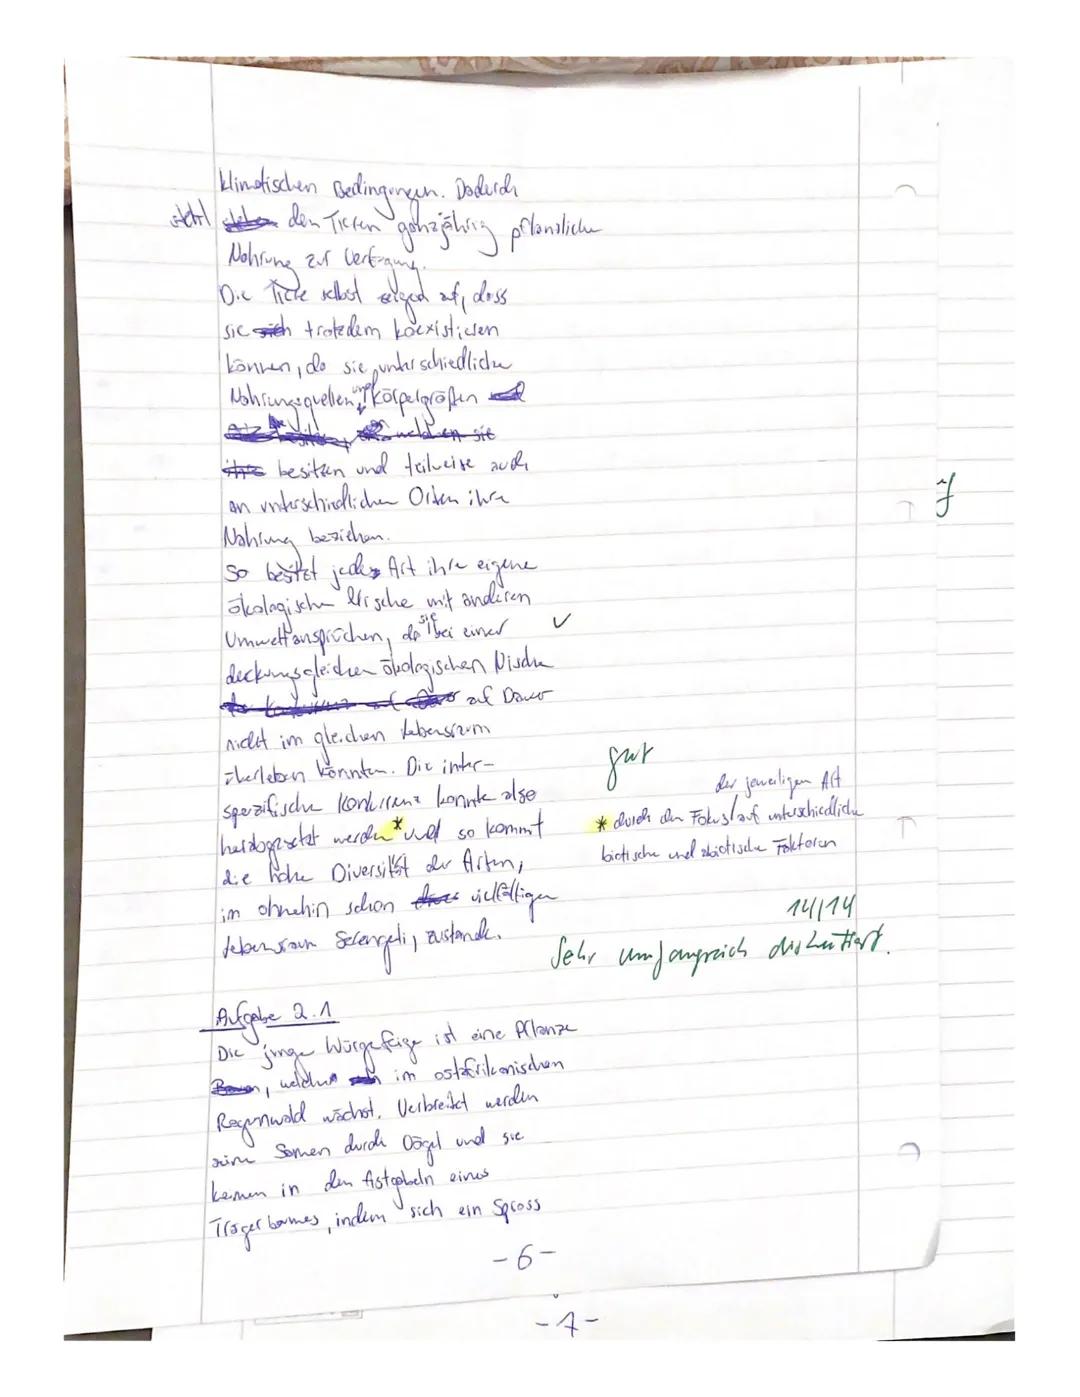 klimatischen Bedingungen. Dadurch
steht den Tieren ganzjährig pflanzliche
Nahrung zur Verfügung.
Die Tiere selbst zeigen auf, dass
sie trotzdem koexistieren
können, da sie unterschiedliche
Nahrungsquellen und Körpergrößen
besitzen und teilweise auch
an unterschiedlichen Orten ihre
Nahrung beziehen.
So besitzt jede Art ihre eigene
ökologische Nische mit anderen
Umweltansprüchen, da sie bei einer ✓
deckungsgleichen ökologischen Nische
auf Dauer
nicht im gleichen Lebensraum
überleben könnten. Die inter-
gut
spezifische Konkurrenz konnte also
der jeweiligen Art
herabgesetzt werden * und so kommt
* durch den Fokus / auf unterschiedliche
biotische und abiotische Faktoren
die hohe Diversität der Arten,
im ohnehin schon vielfältigen
14/14
Lebensraum Serengeti, zustande.
Sehr umfangreich diskutiert.
Aufgabe 2.1
Die junge Würgefeige ist eine Pflanze
, welche im ostafrikanischen
Regenwald wächst. Verbreitet werden
seine Samen durch Vögel und sie
keimen in den Astgabeln eines
Trägerbaumes, indem sich ein Spross
- 6 -
- 7 -